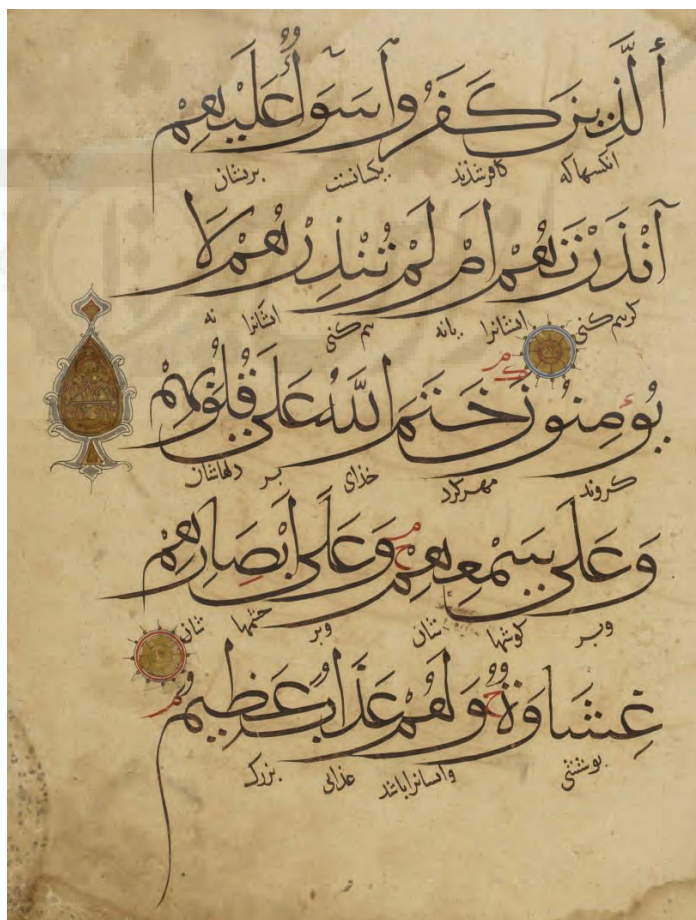 ٱلَّذِينَ كَفَرُوا سَوَآءٌ عَلَيْهِمْ
انکسهاکه کافرشدند یکسانست بریشان
ءَأَنْذَرْتَهُمْ أَمْ لَمْ تُنْذِرْهُمْ لَا
کربیم کنی ایشانرا یانه بیم کنی ایشانرا نه
يُؤْمِنُونَ خَتَمَ اللَّهُ عَلَى قُلُوبِهِمْ
کروند مهرکرد خذای بر دلهاشان
وَعَلَى سَمْعِهِمْ وَعَلَى أَبْصَارِهِمْ
وبر کوشها شان وبر چشمها شان
غِشَاوَةٌ وَلَهُمْ عَذَابٌ عَظِيمٌ
پوششی وایشانراباشد عذابی بزرک